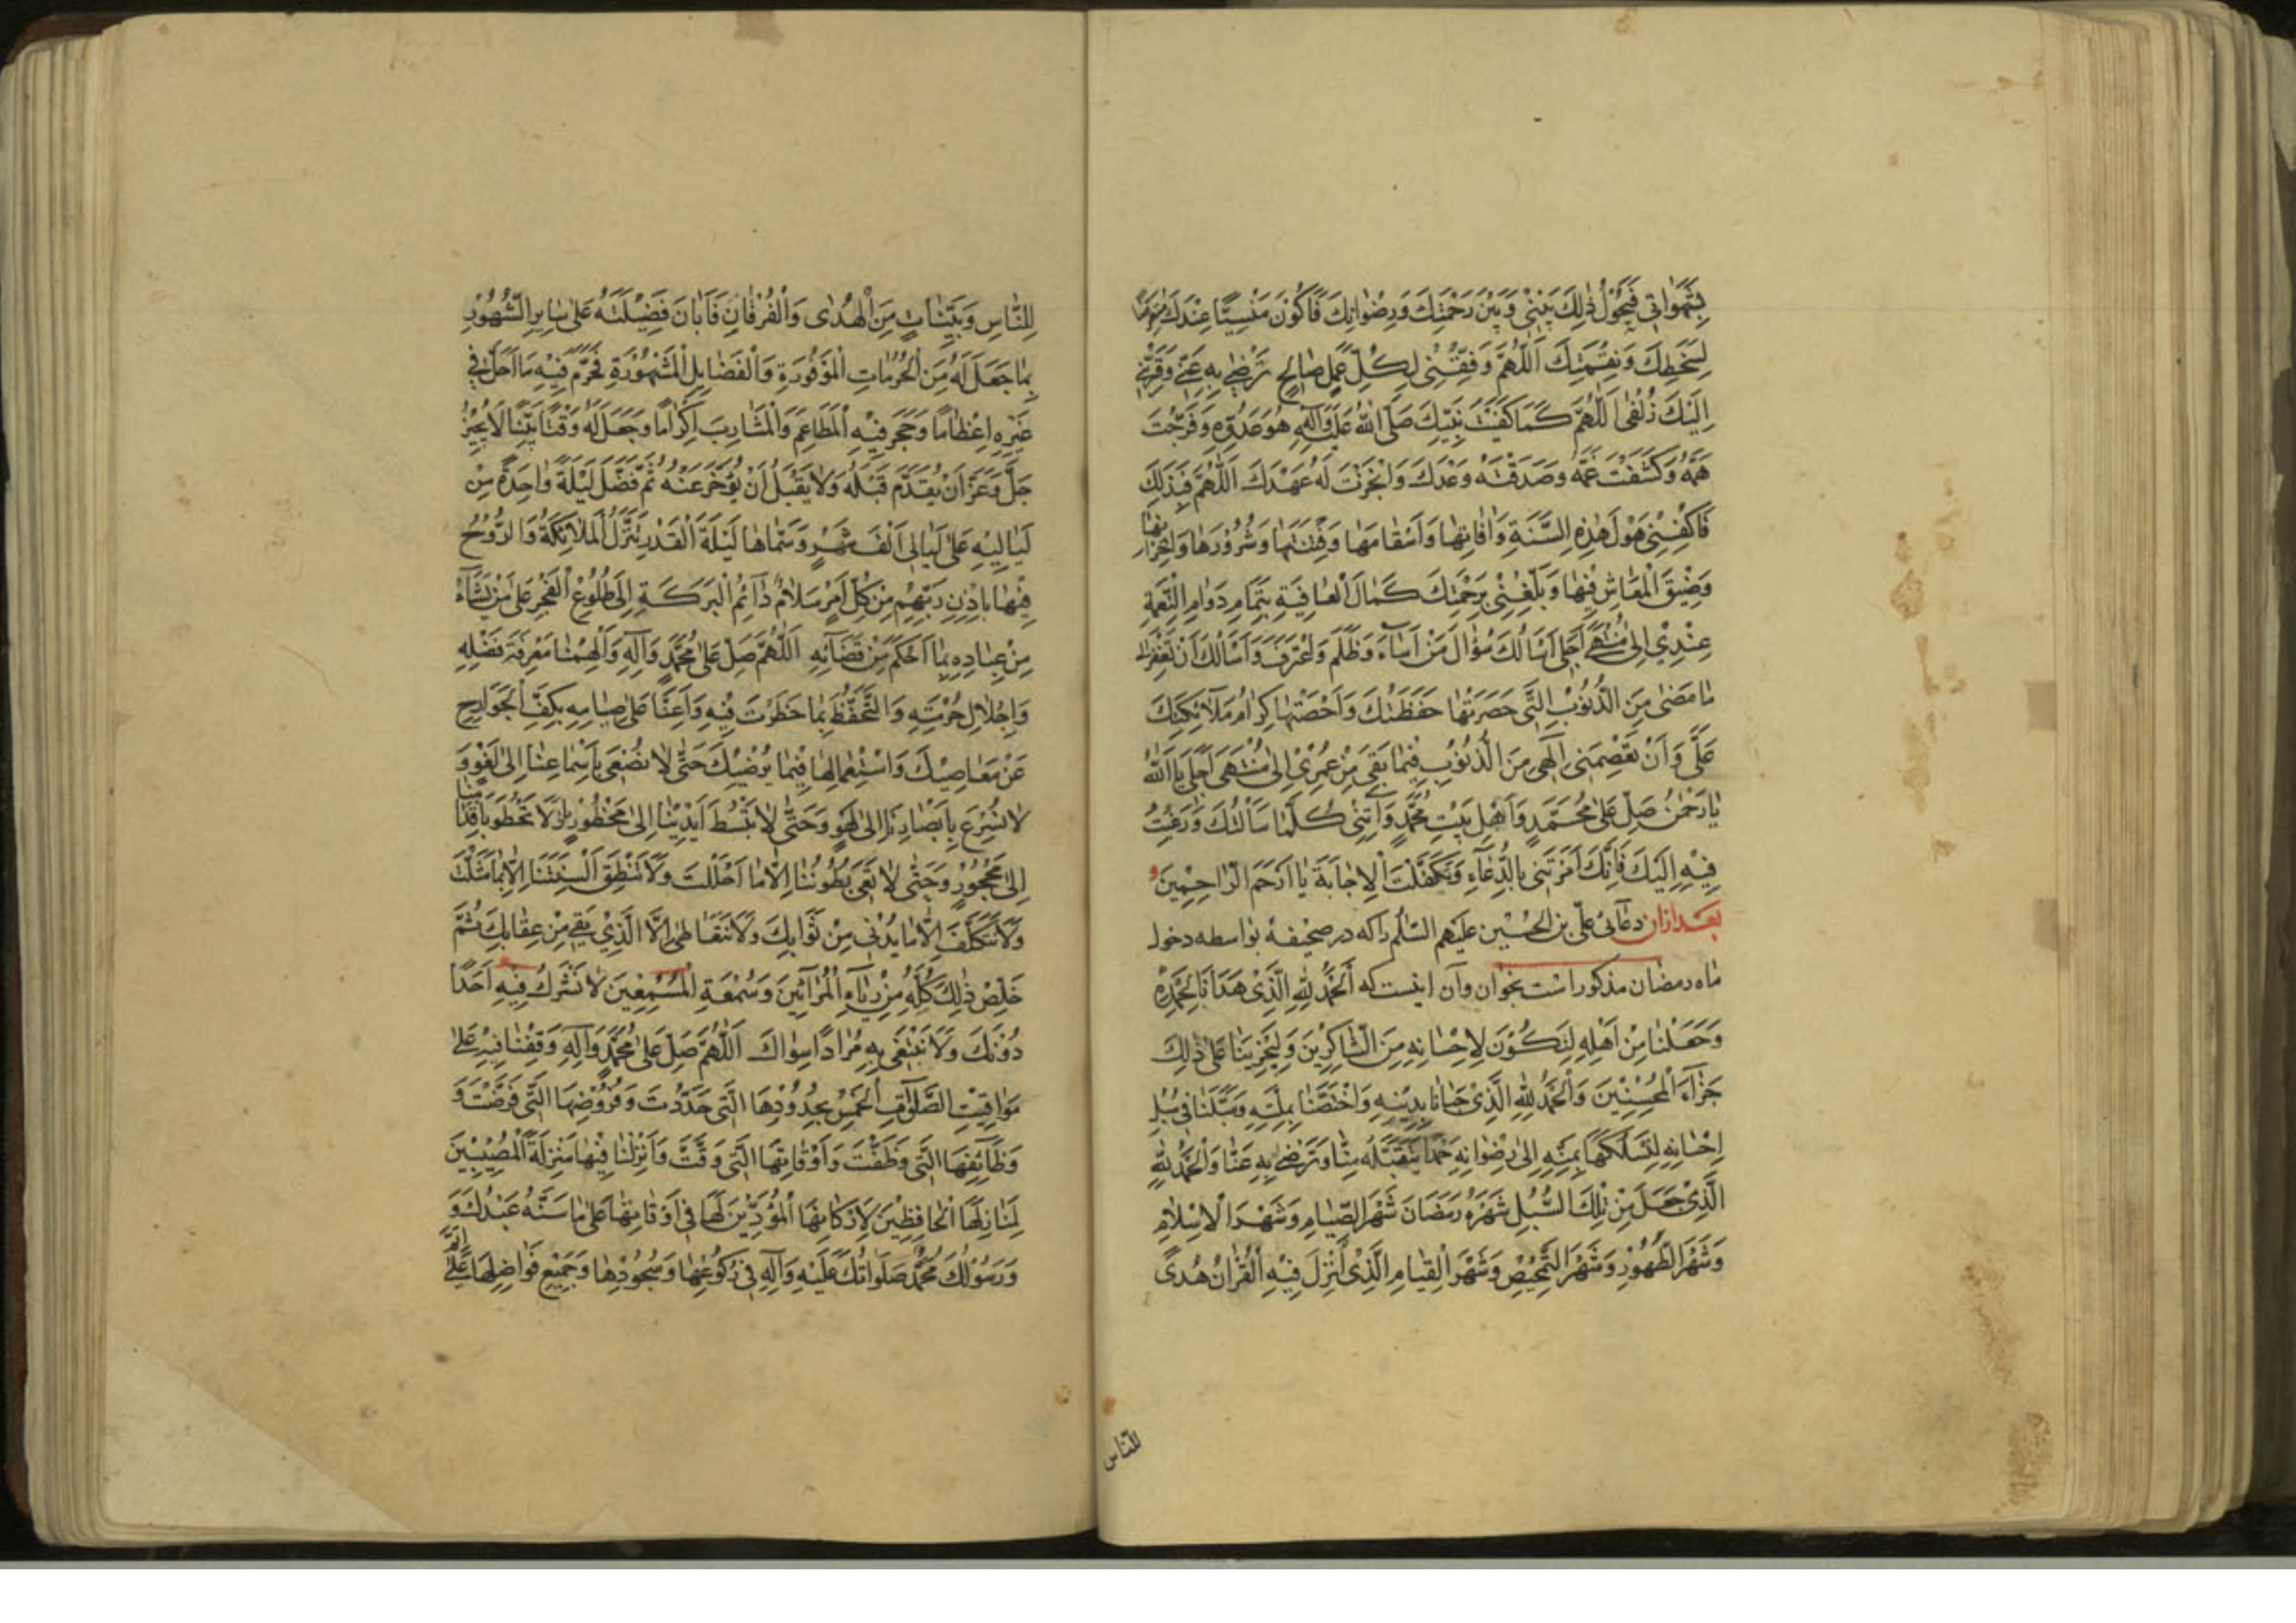 بِشَهَوَاتِي فَيَحُولُ ذٰلِكَ بَيْنِي وَبَيْنَ رَحْمَتِكَ وَرِضْوَانِكَ فَأَكُونَ مَنْسِيًّا عِنْدَكَ مُتَعَرِّضًا
لِسَخَطِكَ وَنِقْمَتِكَ اَللّٰهُمَّ وَفِّقْنِي لِكُلِّ عَمَلٍ صَالِحٍ تَرْضٰى بِهِ عَنِّي وَقَرِّبْنِي
اِلَيْكَ زُلْفٰى اَللّٰهُمَّ كَمَا كَفَيْتَ نَبِيَّكَ صَلَّى اللّٰهُ عَلَيْهِ وَآلِهِ هَوْلَ عَدُوِّهِ وَفَرَّجْتَ
هَمَّهُ وَكَشَفْتَ غَمَّهُ وَصَدَقْتَهُ وَعْدَكَ وَاَنْجَزْتَ لَهُ عَهْدَكَ اَللّٰهُمَّ فَبِذٰلِكَ
فَاكْفِنِي هَوْلَ هٰذِهِ السَّنَةِ وَاٰفَاتِهَا وَاَسْقَامَهَا وَفِتْنَتَهَا وَشُرُورَهَا وَاَحْزَانَهَا
وَضِيْقَ الْمَعَاشِ فِيْهَا وَبَلِّغْنِي بِرَحْمَتِكَ كَمَالَ الْعَافِيَةِ بِتَمَامِ دَوَامِ النِّعْمَةِ
عِنْدِي اِلٰى مُنْتَهٰى اَجَلِي اَسْاَلُكَ سُؤَالَ مَنْ اَسَآءَ وَظَلَمَ وَاعْتَرَفَ وَاَسْاَلُكَ اَنْ تَغْفِرَ لِي
مَا مَضٰى مِنَ الذُّنُوبِ الَّتِي حَصَرَتْهَا حَفَظَتُكَ وَاَحْصَتْهَا كِرَامُ مَلَآئِكَتِكَ
عَلَيَّ وَاَنْ تَعْصِمَنِي اِلٰهِي مِنَ الذُّنُوبِ فِيْمَا بَقِيَ مِنْ عُمْرِي اِلٰى مُنْتَهٰى اَجَلِي يَا اَللّٰهُ
يَا رَحْمٰنُ صَلِّ عَلٰى مُحَمَّدٍ وَاَهْلِ بَيْتِ مُحَمَّدٍ وَاٰتِنِي كُلَّمَا سَاَلْتُكَ وَرَغِبْتُ
فِيْهِ اِلَيْكَ فَاِنَّكَ اَمَرْتَنِي بِالدُّعَآءِ وَتَكَفَّلْتَ الْاِجَابَةَ يَا اَرْحَمَ الرَّاحِمِيْنَ و
بعد ازان دعائى على بن الحسين عليهم السّلم راكه در صحيفهٔ بواسطه دخول
ماه رمضان مذكور است بخوان وآن اينست كه اَلْحَمْدُ لِلّٰهِ الَّذِي هَدَانَا لِحَمْدِهِ
وَجَعَلْنَا مِنْ اَهْلِهِ لِنَكُونَ لِاِحْسَانِهِ مِنَ الشَّاكِرِيْنَ وَلِيَجْزِيَنَا عَلٰى ذٰلِكَ
جَزَآءَ الْمُحْسِنِيْنَ وَالْحَمْدُ لِلّٰهِ الَّذِي حَبَانَا بِدِيْنِهِ وَاخْتَصَّنَا بِمِلَّتِهِ وَسَبَّلَنَا فِي سُبُلِ
اِحْسَانِهِ لِنَسْلُكَهَا بِمَنِّهِ اِلٰى رِضْوَانِهِ حَمْدًا يَتَقَبَّلُهُ مِنَّا وَيَرْضٰى بِهِ عَنَّا وَالْحَمْدُ لِلّٰهِ
الَّذِي جَعَلَ مِنْ تِلْكَ السُّبُلِ شَهْرَهُ رَمَضَانَ شَهْرَ الصِّيَامِ وَشَهْرَ الْاِسْلَامِ
وَشَهْرَ الطَّهُورِ وَشَهْرَ التَّمْحِيْصِ وَشَهْرَ الْقِيَامِ الَّذِي اُنْزِلَ فِيْهِ الْقُرْاٰنُ هُدًى
للناس
لِلنَّاسِ وَبَيِّنَاتٍ مِنَ الْهُدٰى وَالْفُرْقَانِ فَاَبَانَ فَضِيْلَتَهُ عَلٰى سَايِرِ الشُّهُورِ
بِمَا جَعَلَ لَهُ مِنَ الْحُرُمَاتِ الْمَوْفُورَةِ وَالْفَضَايِلِ الْمَشْهُورَةِ فَحَرَّمَ فِيْهِ مَا اَحَلَّ فِي
غَيْرِهِ اِعْظَامًا وَحَجَرَ فِيْهِ الْمَطَاعِمَ وَالْمَشَارِبَ اِكْرَامًا وَجَعَلَ لَهُ وَقْتًا بَيِّنًا لَا يُجِيْزُ
جَلَّ وَعَزَّ اَنْ يُقَدَّمَ قَبْلَهُ وَلَا يَقْبَلُ اَنْ يُؤَخَّرَ عَنْهُ ثُمَّ فَضَّلَ لَيْلَةً وَاحِدَةً مِنْ
لَيَالِيْهِ عَلٰى لَيَالِي اَلْفِ شَهْرٍ وَسَمَّاهَا لَيْلَةَ الْقَدْرِ تَنَزَّلُ الْمَلَائِكَةُ وَالرُّوحُ
فِيْهَا بِاِذْنِ رَبِّهِمْ مِنْ كُلِّ اَمْرٍ سَلَامٌ دَآئِمُ الْبَرَكَةِ اِلٰى طُلُوعِ الْفَجْرِ عَلٰى مَنْ يَشَآءُ
مِنْ عِبَادِهِ بِمَا اَحْكَمَ مِنْ قَضَآئِهِ اَللّٰهُمَّ صَلِّ عَلٰى مُحَمَّدٍ وَآلِهِ وَاَلْهِمْنَا مَعْرِفَةَ فَضْلِهِ
وَاِجْلَالَ حُرْمَتِهِ وَالتَّحَفُّظَ بِمَا حَظَرْتَ فِيْهِ وَاَعِنَّا عَلٰى صِيَامِهِ بِكَفِّ الْجَوَارِحِ
عَنْ مَعَاصِيْكَ وَاسْتِعْمَالِهَا فِيْمَا يُرْضِيْكَ حَتّٰى لَا نُصْغِيَ بِاَسْمَاعِنَا اِلٰى لَغْوٍ وَ
لَا نُسْرِعَ بِاَبْصَارِنَا اِلٰى لَهْوٍ وَحَتّٰى لَا نَبْسُطَ اَيْدِيَنَا اِلٰى مَحْظُورٍ وَلَا نَخْطُوَ بِاَقْدَامِنَا
اِلٰى مَحْجُورٍ وَحَتّٰى لَا تَعِيَ بُطُونُنَا اِلَّا مَا اَحْلَلْتَ وَلَا تَنْطِقَ اَلْسِنَتُنَا اِلَّا بِمَا مَثَّلْتَ
وَلَا نَتَكَلَّفَ اِلَّا مَا يُدْنِي مِنْ ثَوَابِكَ وَلَا نَتَعَاطٰى اِلَّا الَّذِي يَقِي مِنْ عِقَابِكَ ثُمَّ
خَلِّصْ ذٰلِكَ كُلَّهُ مِنْ رِيَآءِ الْمُرَآئِيْنَ وَسُمْعَةِ الْمُسْمِعِيْنَ لَا نُشْرِكُ فِيْهِ اَحَدًا
دُونَكَ وَلَا نَبْتَغِي بِهِ مُرَادًا سِوَاكَ اَللّٰهُمَّ صَلِّ عَلٰى مُحَمَّدٍ وَآلِهِ وَقِفْنَا فِيْهِ عَلٰى
مَوَاقِيْتِ الصَّلَوٰاتِ الْخَمْسِ بِحُدُودِهَا الَّتِي حَدَّدْتَ وَفُرُوضِهَا الَّتِي فَرَضْتَ وَ
وَظَآئِفِهَا الَّتِي وَظَّفْتَ وَاَوْقَاتِهَا الَّتِي وَقَّتَّ وَاَنْزِلْنَا فِيْهَا مَنْزِلَةَ الْمُصِيْبِيْنَ
لِمَنَازِلِهَا الْحَافِظِيْنَ لِاَرْكَانِهَا الْمُؤَدِّيْنَ لَهَا فِي اَوْقَاتِهَا عَلٰى مَا سَنَّهُ عَبْدُكَ وَ
وَرَسُولُكَ مُحَمَّدٌ صَلَوَاتُكَ عَلَيْهِ وَآلِهِ فِي رُكُوعِهَا وَسُجُودِهَا وَجَمِيْعِ فَوَاضِلِهَا عَلٰى اَتَمِّ